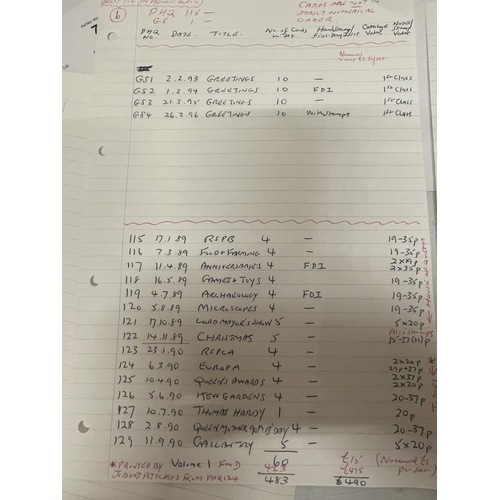 6 PHQ 115 —
GS 1 —
CARDS ARE NOT IN
NUMERICAL
ORDER.
PHQ NO. DATE. TITLE. No. of Cards Handstamp/ First Day Issue Catalogue Value Value
GS1 2.2.93 GREETINGS 10 — 1st Class
GS2 1.2.94 GREETINGS 10 FDI 1st Class
GS3 21.3.95 GREETINGS 10 — 1st Class
GS4 26.2.96 GREETINGS 10 With Stamps 1st Class
115 17.1.89 RSPB 4 — 19-35p
116 7.3.89 FOOD & FARMING 4 — 19-35p
117 11.4.89 ANNIVERSARIES 4 FDI 2x19p 2x35p
118 16.5.89 GAMES & TOYS 4 — 19-35p
119 4.7.89 ARCHAEOLOGY 4 FDI 19-35p
120 5.8.89 MICROSCOPES 4 — 19-35p
121 17.10.89 LORD MAYOR'S SHOW 5 — 5x20p
122 14.11.89 CHRISTMAS 5 — 15-37(11)p
123 23.1.90 RSPCA 4 —
124 6.3.90 EUROPA 4 — 2x20p
125 10.4.90 QUEEN'S AWARDS 4 — 2x37p 2x20p
126 5.6.90 KEW GARDENS 4 — 20-37p
127 10.7.90 THOMAS HARDY 1 — 20p
128 2.8.90 QUEEN MOTHER 90th B'DAY 4 — 20-37p
129 11.9.90 GALLANTRY 5 — 5x20p
*PRINTED BY Volume 1 60 £15 (Nominal £1
FROM PHQ 124 423 £475
483 £490